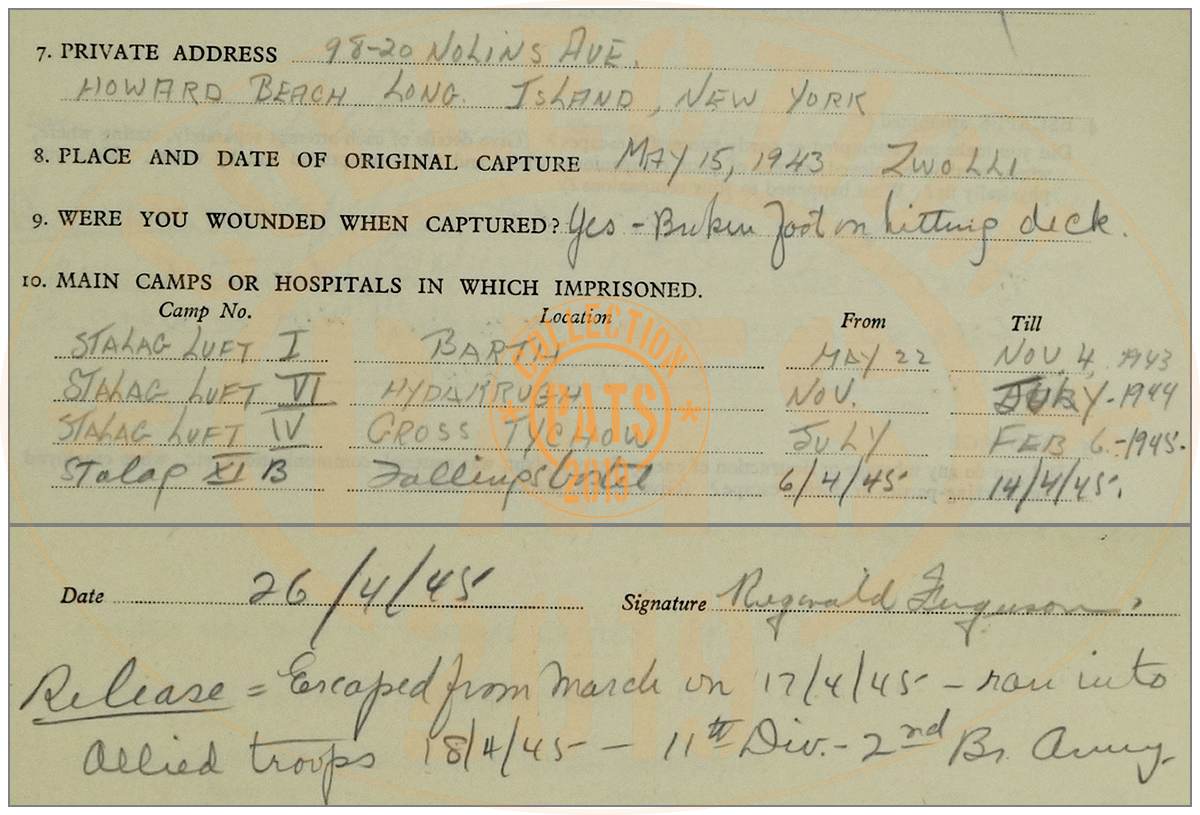 7. PRIVATE ADDRESS 98-20 NOLINS AVE.
HOWARD BEACH LONG. ISLAND, NEW YORK
8. PLACE AND DATE OF ORIGINAL CAPTURE MAY 15, 1943 ZWOLLI
9. WERE YOU WOUNDED WHEN CAPTURED? Yes - Broken foot on hitting deck.
10. MAIN CAMPS OR HOSPITALS IN WHICH IMPRISONED.
Camp No. Location From Till
STALAG LUFT I BARTH MAY 22 NOV. 4, 1943
STALAG LUFT VI HYDAKRUGH NOV. JULY-1944
STALAG LUFT IV GROSS TYCHOW JULY FEB 6.-1945.
Stalag XI B Fallingsbostel 6/4/45 14/4/45.
COLLECTION
PATS
2019
Date 26/4/45 Signature Reginald Ferguson.
Release = Escaped from march on 17/4/45 - ran into
Allied troops 18/4/45 - 11th Div. - 2nd Br. Army.